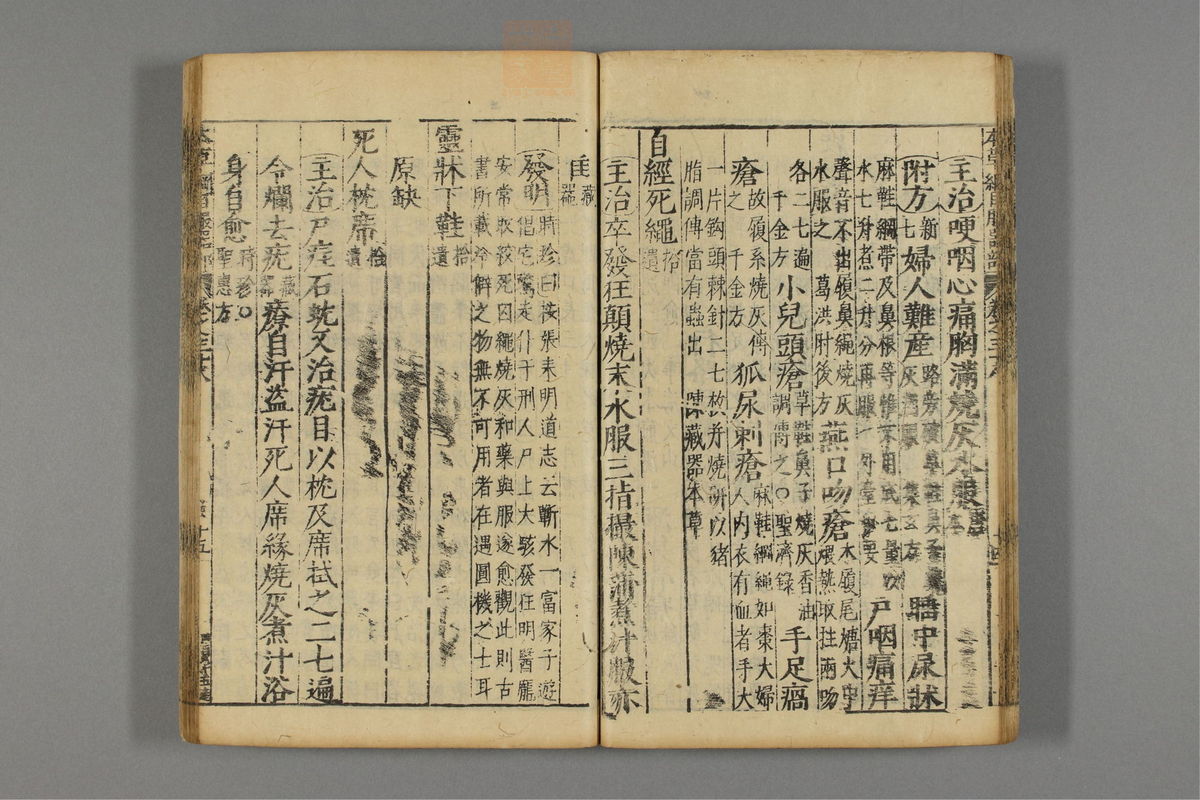 主治哽咽心痛胸滿燒灰水服
附方新七婦人難產路旁破草鞋鼻子燒灰酒服 集玄方 睡中尿牀
麻鞋綱帶及鼻根等惟不用底七量以水七升煮二升分再服 外臺秘要 尸咽痛痒
聲音不出履鼻繩燒灰水服之 葛洪肘後方 燕口吻瘡木履尾煻火中煨熱取拄兩吻
各二七遍 千金方 小兒頭瘡草鞋鼻子燒灰香油調傅之〇聖濟錄 手足瘑
瘡故履系燒灰傅之 千金方 狐尿刺瘡麻鞋綱繩如棗大婦人內衣有血者手大
一片鈎頭棘針二七枚并燒研以猪
脂調傅當有蟲出 陳藏器本草
自經死繩拾遺
主治卒發狂顛燒末水服三指撮陳蒲煮汁服亦
佳藏器
發明時珍曰按張耒明道志云蘄水一富家子遊
倡宅驚走仆于刑人尸上大駭發狂明醫龐
安常取絞死囚繩燒灰和藥與服遂愈觀此則古
書所載冷僻之物無不可用者在遇圓機之士耳
靈牀下鞋拾遺
原缺
死人枕席拾遺
主治尸疰石蚘又治疣目以枕及席拭之二七遍
令爛去疣藏器療自汗盜汗死人席緣燒灰煮汁浴
身自愈 聖惠方